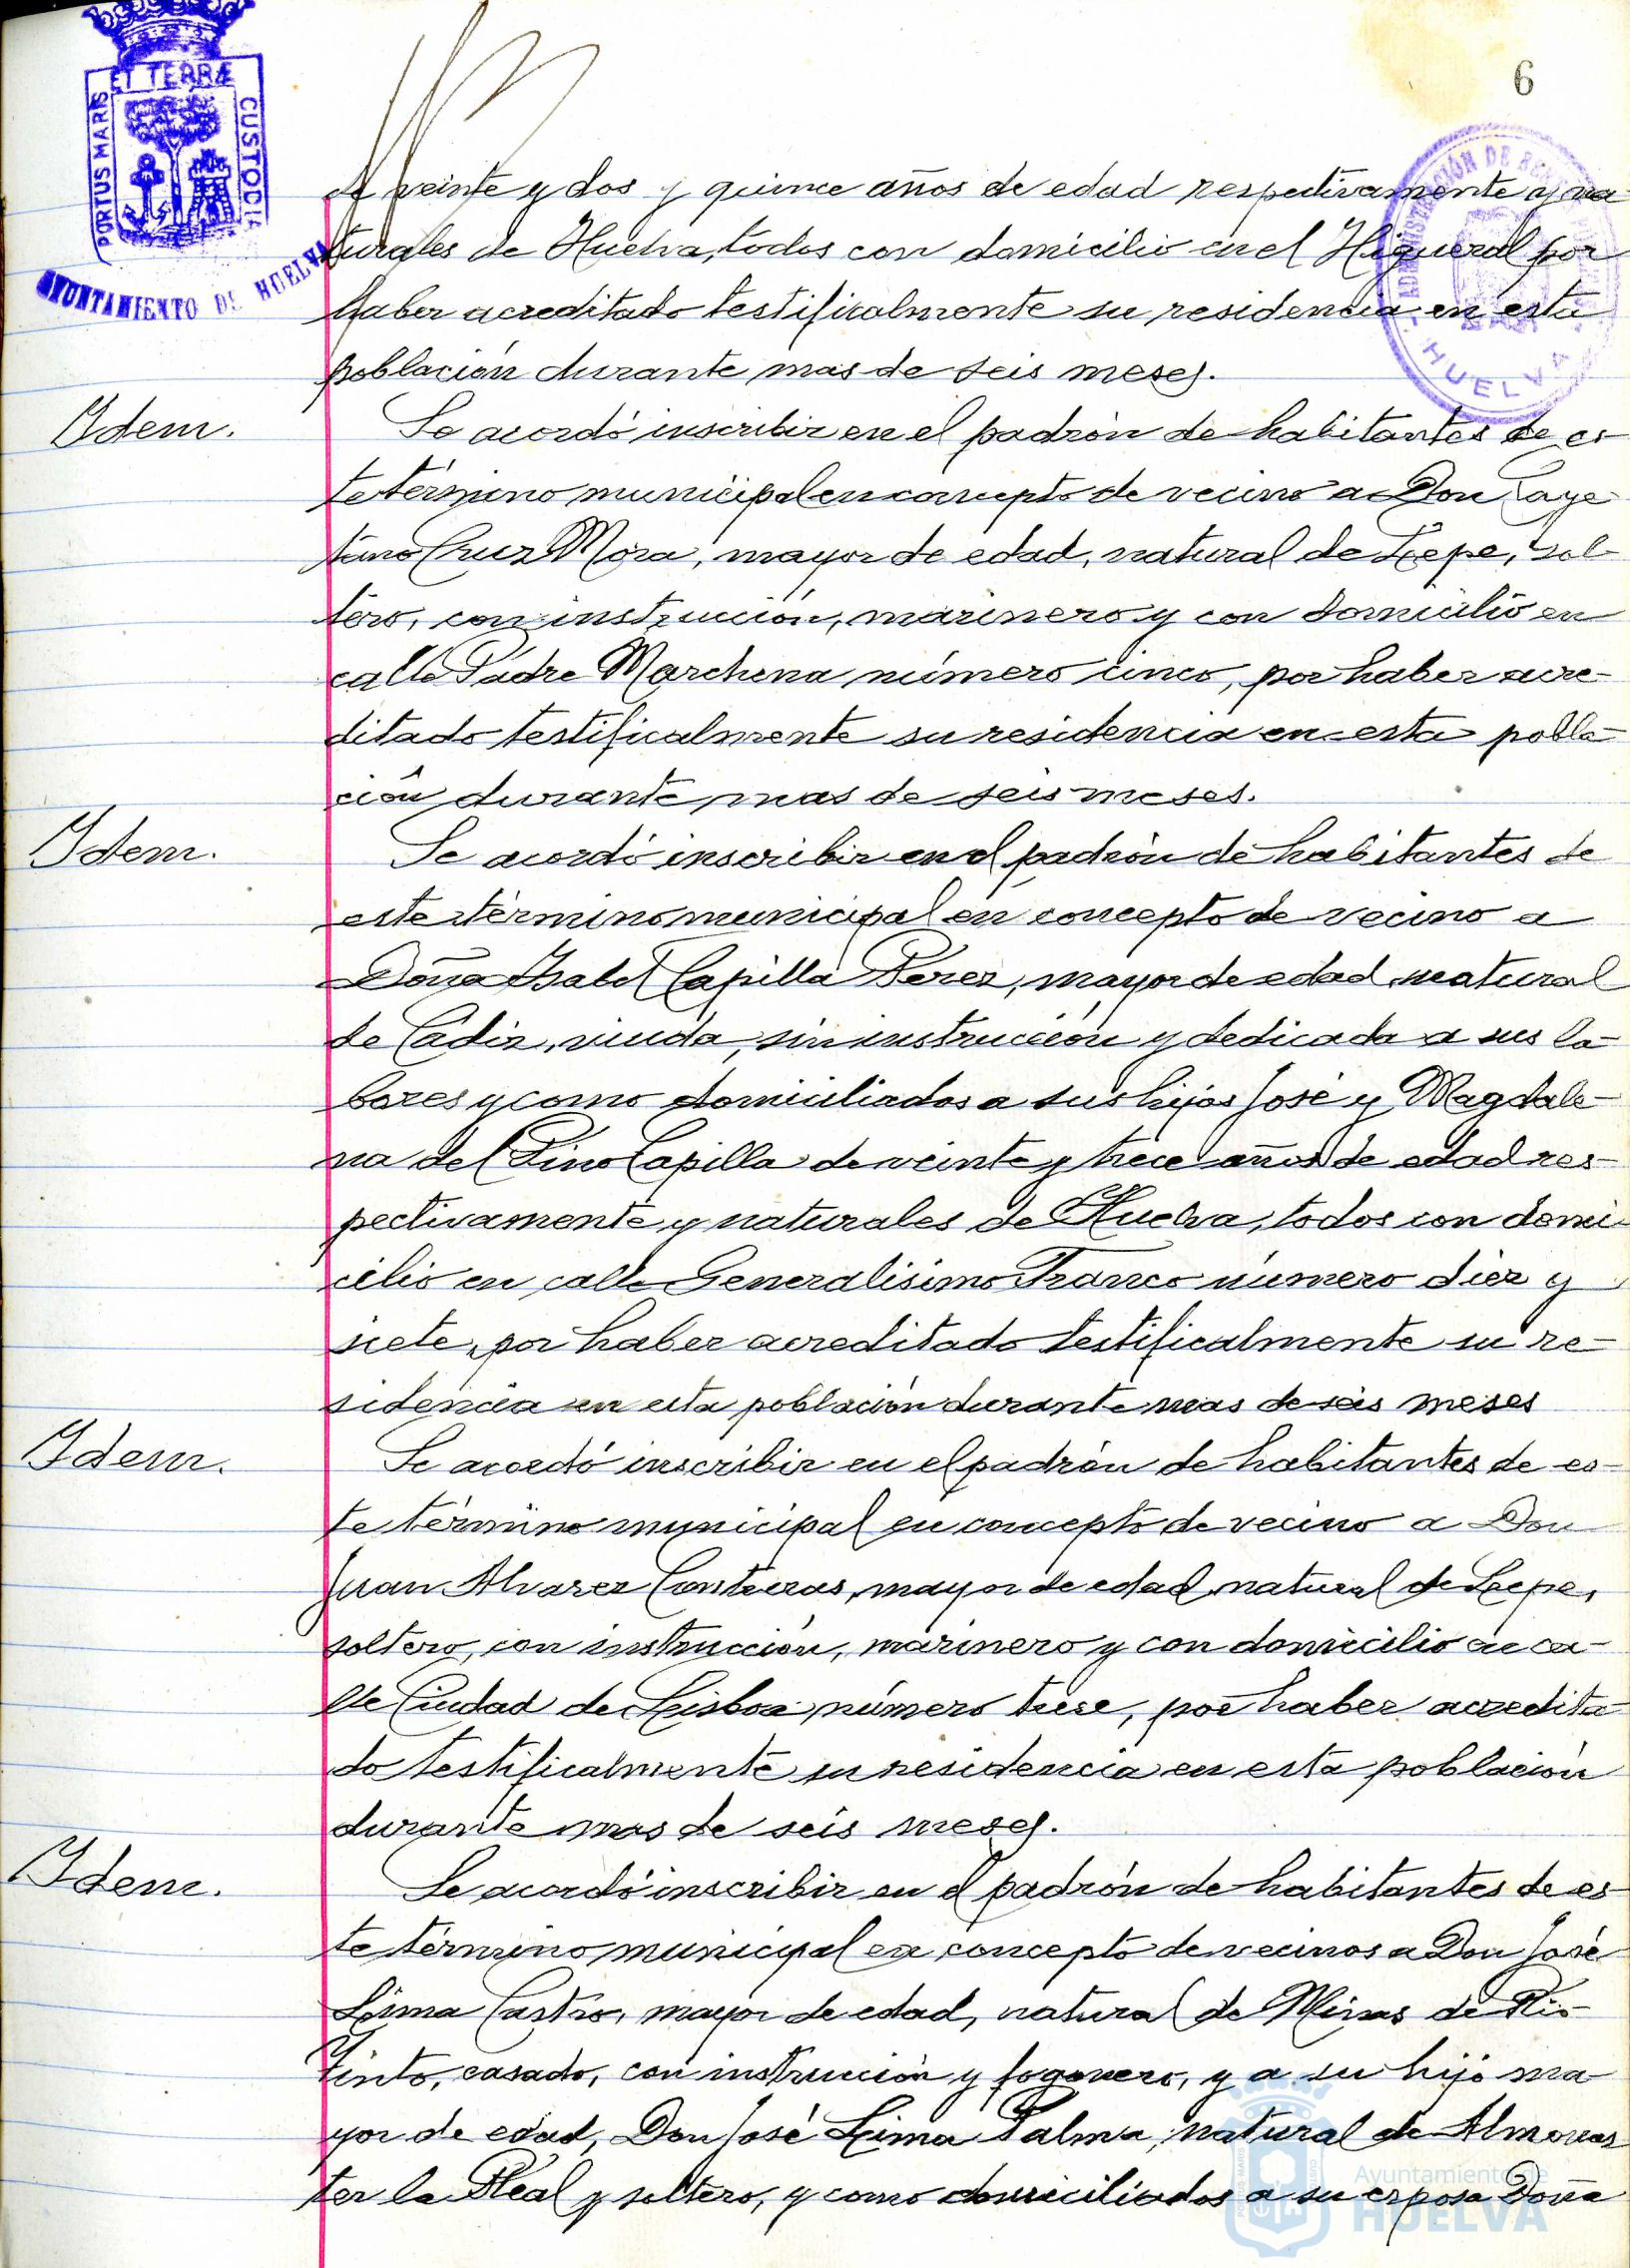 6
PORTUS MARIS ET TERRÆ CUSTODIA
AYUNTAMIENTO DE HUELVA
ADMINISTRACIÓN DE
HUELVA
de veinte y dos y quince años de edad respectivamente y na-
turales de Huelva, todos con domicilio en el Higueral por
haber acreditado testificalmente su residencia en esta
población durante mas de seis meses.
Idem.
Se acordó inscribir en el padrón de habitantes de es-
te término municipal en concepto de vecino a Don Caye-
tano Cruz Mora, mayor de edad, natural de Lepe, sol-
tero, con instrucción, marinero y con domicilio en
calle Padre Marchena número cinco, por haber acre-
ditado testificalmente su residencia en esta pobla-
ción durante mas de seis meses.
Idem.
Se acordó inscribir en el padrón de habitantes de
este término municipal en concepto de vecino a
Doña Isabel Capilla Perez, mayor de edad, natural
de Cádiz, viuda, sin instrucción y dedicada a sus la-
bores y como domiciliados a sus hijos José y Magdale-
na del Pino Capilla de veinte y trece años de edad res-
pectivamente y naturales de Huelva, todos con domi-
cilio en calle Generalisimo Franco número diez y
siete, por haber acreditado testificalmente su re-
sidencia en esta población durante mas de seis meses
Idem.
Se acordó inscribir en el padrón de habitantes de es-
te término municipal en concepto de vecino a Don
Juan Alvarez Contreras, mayor de edad, natural de Lepe,
soltero, con instrucción, marinero y con domicilio en ca-
lle Ciudad de Lisboa número trese, por haber acredita-
do testificalmente su residencia en esta población
durante mas de seis meses.
Idem.
Se acordó inscribir en el padrón de habitantes de es-
te término municipal en concepto de vecinos a Don José
Lima Castro, mayor de edad, natural de Minas de Rio-
Tinto, casado, con instrucción y fogonero, y a su hijo ma-
yor de edad, Don José Lima Palma, natural de Almonas-
ter la Real y soltero, y como domiciliados a su esposa Doña
Ayuntamiento de
HUELVA